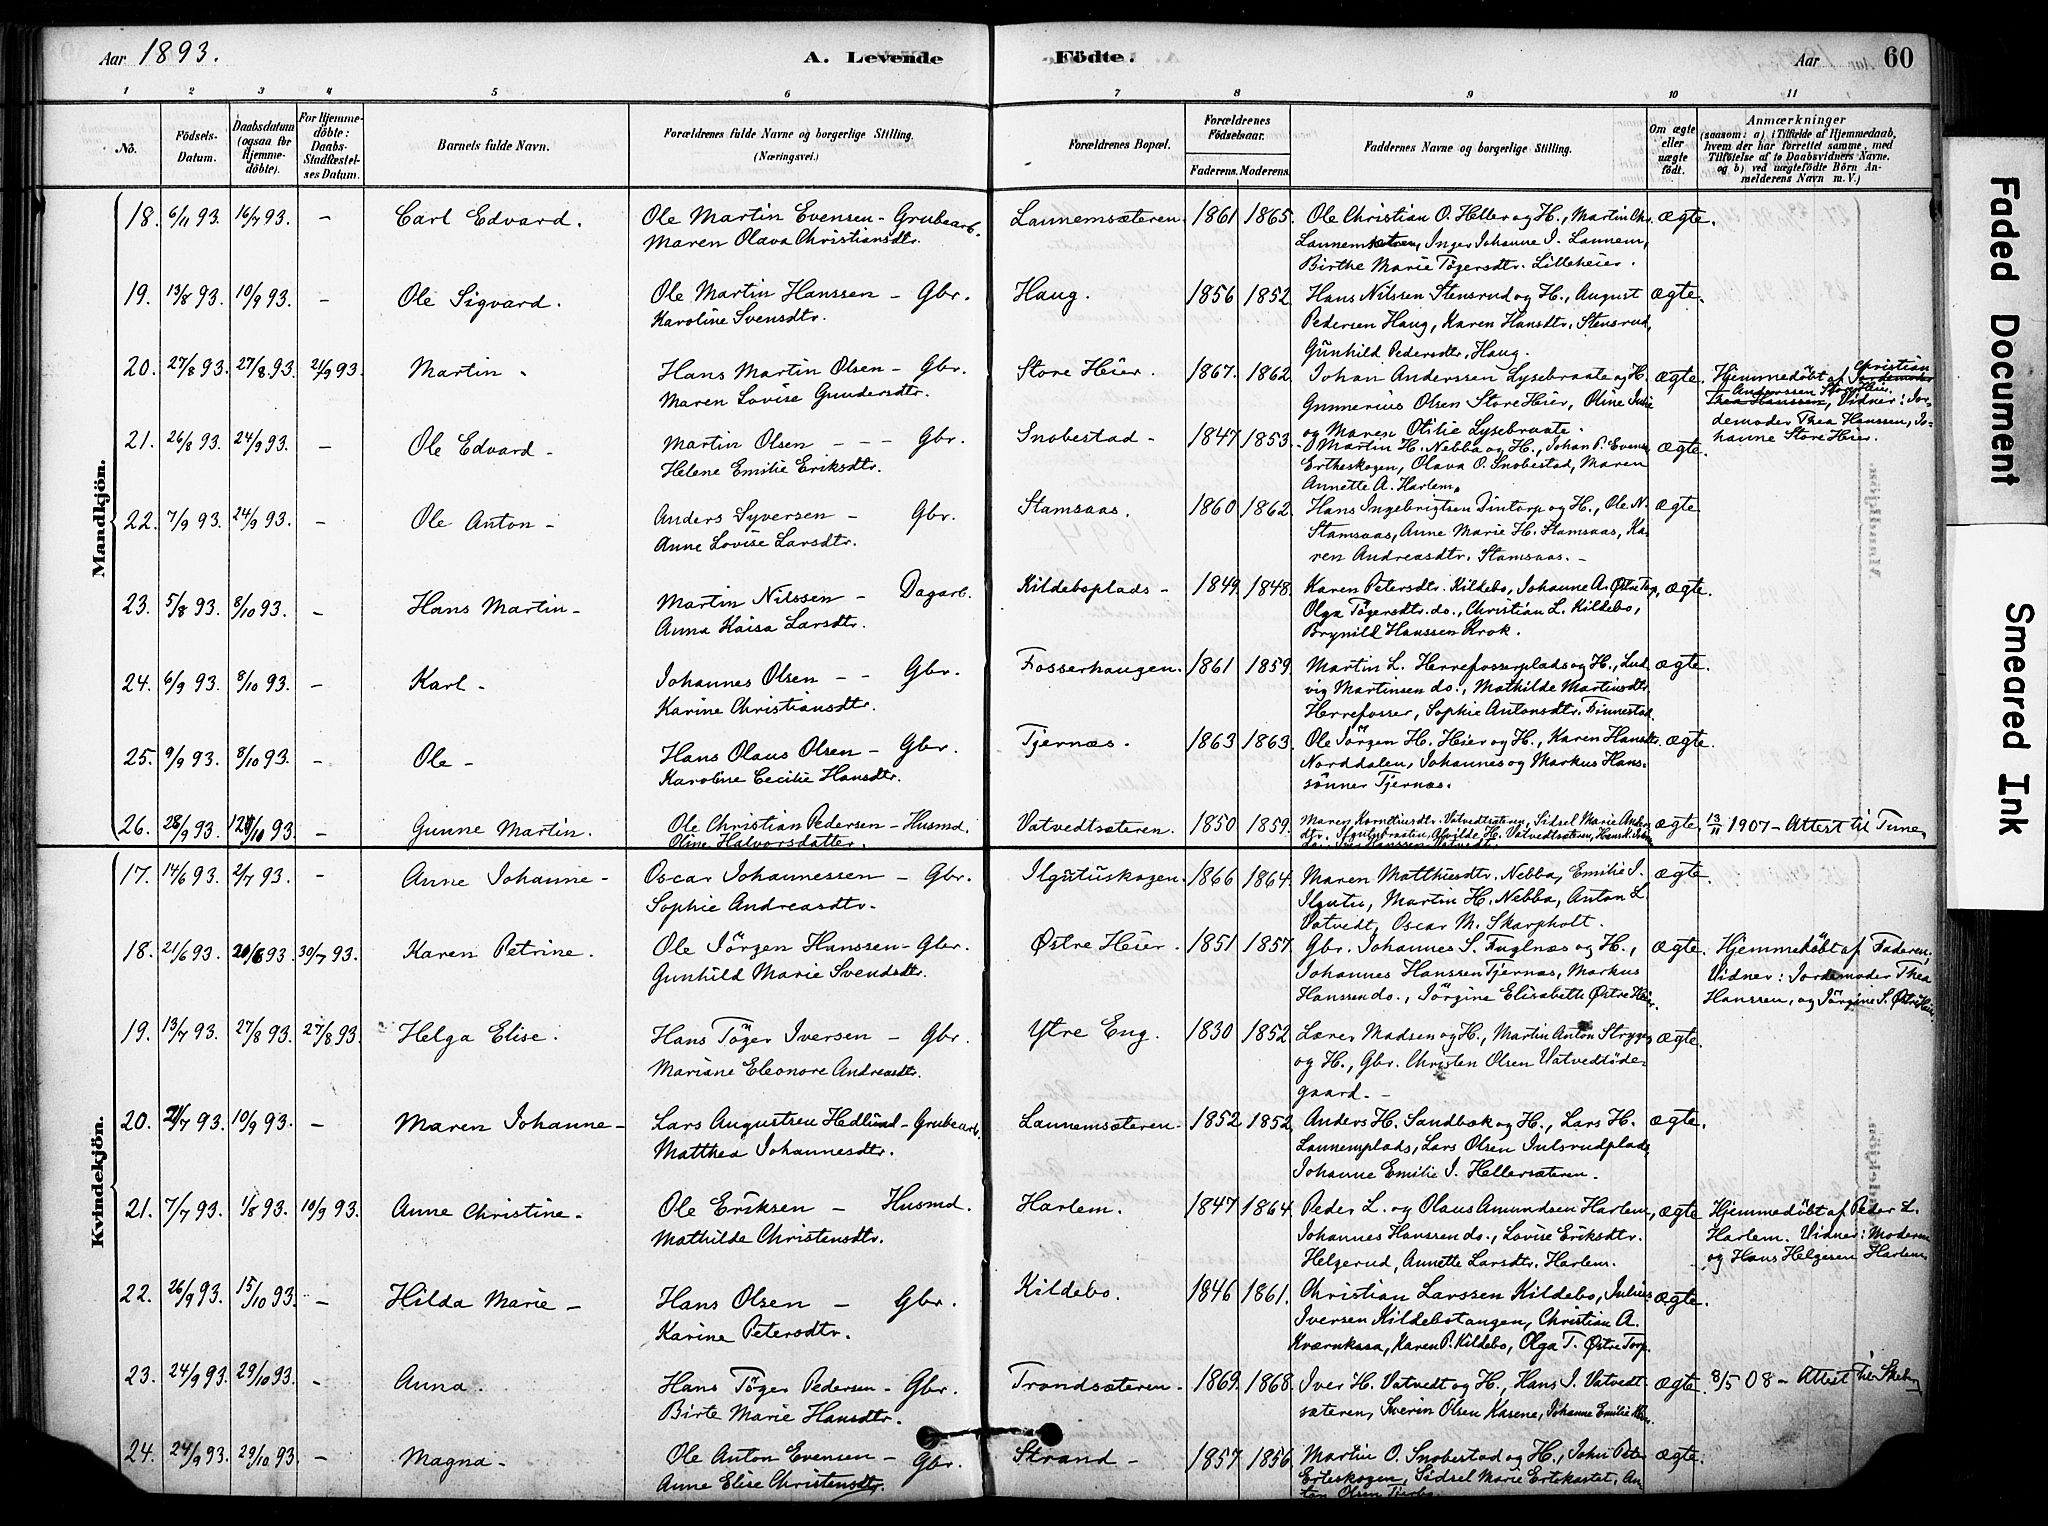 Aar 1893. A. Levende Födte. Aar 60
1 2 3 4 5 6 7 8 9 10 11
No.
Födsels-
Datum.
Daabsdatum
(ogsaa for
Hjemme-
döbte).
For Hjemme-
döbte:
Daabs-
Stadfæstel-
ses Datum.
Barnets fulde Navn.
Forældrenes fulde Navne og borgerlige Stilling.
(Næringsvei.)
Forældrenes Bopæl.
Forældrenes
Födselsaar.
Faderens. Moderens.
Faddernes Navne og borgerlige Stilling.
Om ægte
eller
uægte
födt.
Anmærkninger
(saasom: a) i Tilfælde af Hjemmedaab,
hvem der har forrettet samme, med
Tilföielse af to Daabsvidners Navne,
og b) ved uægtefödte Börn An-
melderens Navn m. V.)
Mandkjön.
18. 6/11 93. 16/7 93. – Carl Edvard. Ole Martin Evensen – Grubearb. Lannemsæteren. 1861 1865. Ole Christian O. Heller og H., Martin Chr. ægte.
Maren Olava Christiansdtr. Lannemsætren, Inger Johanne I. Lannem,
Birthe Marie Tøgersdtr. Lilleheier.
19. 13/8 93. 10/9 93. – Ole Sigvard. Ole Martin Hanssen – Gbr. Haug. 1856 1852. Hans Nilssen Stensrud og H., August ægte.
Karoline Svensdtr. Pedersen Haug, Karen Hansdtr. Stensrud,
Gunhild Pedersdtr. Haug.
20. 27/8 93. 27/8 93. 24/9 93. Martin. Hans Martin Olsen – Gbr. Store Heier. 1867. 1862. Johan Anderssen Lysebraate og H. ægte. Hjemmedøbt af Jordemoder Christian
Maren Lovise Gundersdtr. Gunnerius Olsen Store Heier, Oline Julie Thea Hanssen, Anderssen Store Heier. Vidner: Jor-
og Maren Otilie Lysebraate. demoder Thea Hanssen, Jo-
hanne Store Heier.
21. 26/8 93. 24/9 93. – Ole Edvard – Martin Olsen – – – Gbr. Snobestad – 1847 1853. Martin H. Nebba og H., Johan P. Evensen ægte.
Helene Emilie Eriksdtr. Ertheskogen, Olava O. Snobestad, Maren
Annette A. Harlem.
22. 7/9 93. 24/9 93. – Ole Anton – Anders Syversen – Gbr. Stamsaas. 1860 1862. Hans Ingebrigtsen Tintorp og H., Ole N. ægte.
Anne Lovise Larsdtr. Stamsaas, Anne Marie H. Stamsaas, Ka-
ren Andreasdtr. Stamsaas. –
23. 5/8 93. 8/10 93. – Hans Martin – Martin Nilssen – Dagarb. Kildeboplads – 1849. 1848. Karen Petersdtr. Kildebo, Johanne A. Østre Torp, ægte.
Anna Kaisa Larsdtr. Olga Tøgersdtr. do., Christian L. Kildebo,
Brynild Hanssen Krok.
24. 6/9 93. 8/10 93. – Karl – Johannes Olsen – – Gbr. Fosserhaugen. 1861 1859. Martin L. Herrefosserplads og H., Lud ægte.
Karine Christiansdtr. vig Martinsen do., Mathilde Martinsdtr.
Herrefosser, Sophie Antonsdtr. Finnestad.
25. 9/9 93. 8/10 93. – Ole – Hans Olaus Olsen – Gbr. Tjernæs. 1863 1863. Ole Jörgen H. Heier og H., Karen Hansdtr. ægte.
Karoline Cecilie Hansdtr. Norddalen, Johannes og Markus Hans-
sønner Tjernæs.
26. 28/9 93. /10 93. – Gunne Martin. Ole Christian Pedersen – Husmd. Vatvedtsæteren. 1850 1859. Maren Korneliusdtr. Vatvedtsæteren, Sidsel Marie Anders ægte. 13/11 1907 – Attest til Tune
Oline Halvorsdatter.
Kvindekjön.
17. 14/6 93. 2/7 93. – Anne Johanne – Oscar Johannessen – Gbr. Ilgutuskogen. 1866 1864. Maren Matthiesdtr. Nebba, Emilie I. ægte.
Sophie Andreasdtr. Ilgutu, Martin H. Nebba, Anton L.
Vatvedt, Oscar M. Skarpholt.
18. 21/6 93. 20/8 93. 30/7 93. Karen Petrine. Ole Jörgen Hanssen – Gbr. Østre Heier. 1851 1857. Gbr. Johannes S. Fuglnæs og H., ægte. Hjemmedöbt af Faderen,
Gunhild Marie Svendsdtr. Johannes Hanssen Tjernæs, Markus Vidner: Jordemoder Thea
Hanssen do., Jörgine Elisabeth Østre Heier. Hanssen, og Jörgine S. Østre Heier.
19. 13/7 93. 27/8 93. 27/8 93. Helga Elise. Hans Töger Iversen – Gbr. Ytre Eng. 1830 1852. Lærer Madsen og H., Martin Anton Strygen ægte.
Mariane Eleonore Andreasdtr. og H., Gbr. Christen Olsen Vatvedtöde-
gaard. –
20. 21/7 93. 10/9 93. – Maren Johanne – Lars Augustsen Hedlund – Grubearb. Lannemsæteren – 1852 1852. Anders H. Sandbæk og H., Lars H. ægte.
Matthea Johannesdtr. Lannemplads, Lars Olsen Julsrudplads,
Johanne Emilie I. Hellersæteren.
21. 7/7 93. 1/8 93. 10/9 93. Anne Christine – Ole Eriksen – Husmd. Harlem. 1847 1864. Peder L. og Olaus Amundsen Harlem, ægte. Hjemmedöbt af Peder L.
Mathilde Christensdtr. Johannes Hanssen do., Lovise Eriksdtr. Harlem. Vidner: Moderen
Helgerud, Annette Larsdtr. Harlem. og Hans Helgesen Harlem.
22. 26/9 93. 15/10 93. – Hilda Marie – Hans Olsen – Gbr. Kildebo. 1846 1861. Christian Larssen Kildebo, Julius ægte.
Karine Petersdtr. Iversen Kildebotangen, Christian A.
Kværnkasa, Karen P. Kildebo, Olga T. Østre Torp.
23. 24/9 93. 29/10 93. – Anna. Hans Töger Pedersen – Gbr. Trondsæteren – 1869. 1868. Iver H. Vatvedt og H., Hans I. Vatvedt- ægte. 8/5 08 – Attest til
Birte Marie Hansdtr. sæteren, Sverin Olsen Kasene, Johanne Emilie
24. 24/9 93. 29/10 93. – Magna – Ole Anton Evensen – Gbr. Strand – 1857 1856. Martin O. Snobestad og H., John Peter ægte.
Anne Elise Christensdtr. Erteskogen, Sidsel Marie Ertekastet, An-
ton Olsen
Faded Document
Smeared Ink